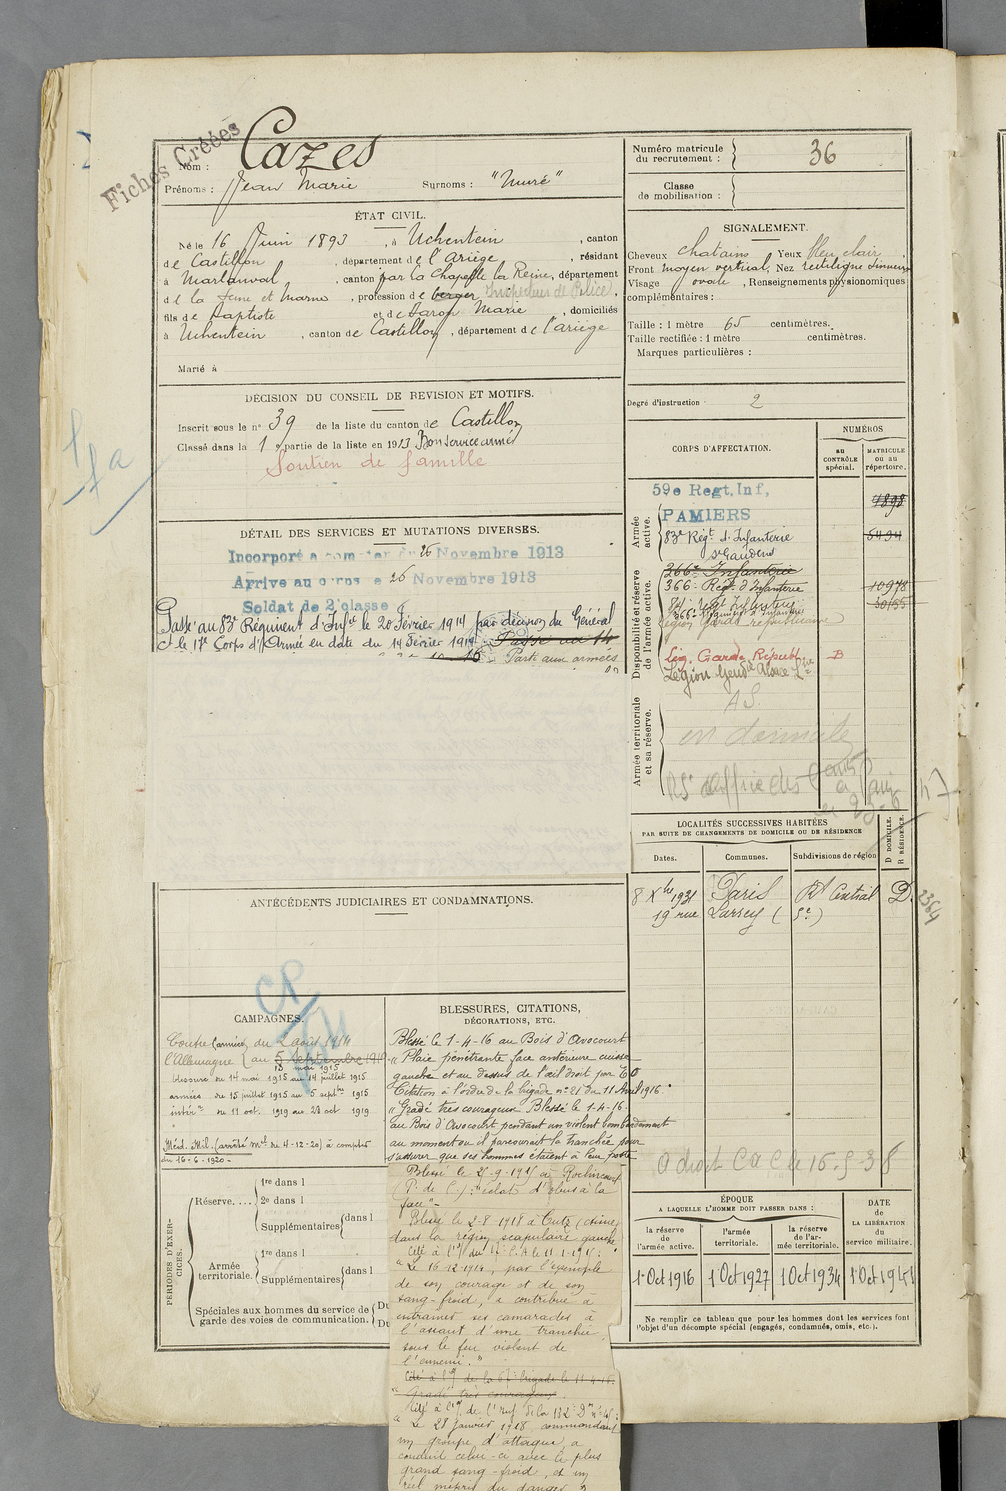 Fiches Créées
Nom : Cazes
Prénoms : Jean Marie Surnoms : "Muré"
Numéro matricule du recrutement : 36
Classe de mobilisation :
ÉTAT CIVIL.
Né le 16 Juin 1893, à Uchentein, canton
de Castillon, département de l'Ariège, résidant
à Marlanval, canton par la Chapelle la Reine, département
d de la Seine et Marne, profession de berger Inspecteur de Police,
fils de Baptiste et de Marie, domiciliés
à Uchentein, canton de Castillon, département de l'ariège
Marié à
SIGNALEMENT.
Cheveux chatains Yeux bleu clair,
Front moyen vertical, Nez rectiligne
Visage ovale, Renseignements physionomiques
complémentaires :
Taille : 1 mètre 65 centimètres.
Taille rectifiée : 1 mètre centimètres.
Marques particulières :
Degré d'instruction 2
DÉCISION DU CONSEIL DE REVISION ET MOTIFS.
Inscrit sous le n° 39 de la liste du canton de Castillon
Classé dans la 1e partie de la liste en 1913 Bon service armé
Soutien de famille
DÉTAIL DES SERVICES ET MUTATIONS DIVERSES.
Incorporé a compter du 26 Novembre 1913
Arrive au corps le 26 Novembre 1913
Soldat de 2e classe
Passé au 83e Régiment d'Infie le 20 Février 1914 par décision du Général
Ct le 17e Corps d'Armée en date du 14 Février 1914. Passé au 14
Parti aux armées
CORPS D'AFFECTATION.
NUMÉROS
au CONTRÔLE spécial.
MATRICULE ou au répertoire.
Armée active.
59e Regt. Inf, 1898
PAMIERS
83e Régt d'Infanterie 5494
St Gaudens
Disponibilité et réserve de l'armée active.
366e Infanterie
366e Régt d'Infanterie 10978
légion garde républicaine
Lég. Garde Républ. B
Légion Gendie Alsace Lne
Armée territoriale et sa réserve.
A S.
en domicile
LOCALITÉS SUCCESSIVES HABITÉES
PAR SUITE DE CHANGEMENTS DE DOMICILE OU DE RÉSIDENCE
D DOMICILE.
R RÉSIDENCE.
Dates. Communes. Subdivisions de région
8 Xbre 1921 Paris Rt Central D.
2364
ANTÉCÉDENTS JUDICIAIRES ET CONDAMNATIONS.
CAMPAGNES.
Contre (armées) du 2 août 1914
l'Allemagne au 5 septembre 1919
13 mai 1915
blessure du 14 mai 1915 au 14 juillet 1915
armées du 15 juillet 1915 au 5 septbre 1915
intérr du 11 oct. 1919 au 28 oct 1919
Méd. Mil. (arrêté mel du 4-12-20) à compter
du 16-6-1920
BLESSURES, CITATIONS,
DÉCORATIONS, ETC.
Blessé le 1-4-16 au Bois d'Avocourt
"Plaie pénétrante face antérieure cuisse
gauche et au dessus de l'œil droit par EO
Citation à l'ordre de la brigade n° 21 du 11 Avril 1916.
"Gradé très courageux Blessé le 1-4-16
au Bois d'Avocourt pendant un violent bombardement
au moment où il parcourait la tranchée pour
s'assurer que ses hommes étaient à leur poste
Blessé le 25-9-1915 à Roclincourt
(P. de C.) : "éclat d'obus à la
face".
Blessé le 2-8-1918 à Cutz (Aisne)
dans la région scapulaire gauche
Cité à l'O/ du 17e C.A le 11-1-1915 :
"Le 16-12-1914, par l'exemple
de son courage et de son
sang-froid, a contribué à
entrainer ses camarades à
l'assaut d'une tranchée
sous le feu violent de
l'ennemi."
Cité à l'O/ de la 67e brigade le 11-4-16.
"Gradé très courageux.
" Le 28 janvier 1918, commandant
un groupe d'attaque, a
conduit celui-ci avec le plus
grand sang-froid, et un
réel mépris du danger
A droit C a C le 16-5-38
PÉRIODES D'EXERCICES.
Réserve, ....
1re dans l
2e dans l
Supplémentaires dans l
Armée territoriale.
1re dans l
Supplémentaires dans l
Spéciales aux hommes du service de garde des voies de communication.
Du
Du
ÉPOQUE
A LAQUELLE L'HOMME DOIT PASSER DANS :
DATE
DE LA LIBÉRATION
DU service militaire.
la réserve de l'armée active.
l'armée territoriale.
la réserve de l'armée territoriale.
1er Oct 1916 1er Oct 1927 1 Oct 1934 1er Oct 1941
Ne remplir ce tableau que pour les hommes dont les services font
l'objet d'un décompte spécial (engagés, condamnés, omis, etc.).